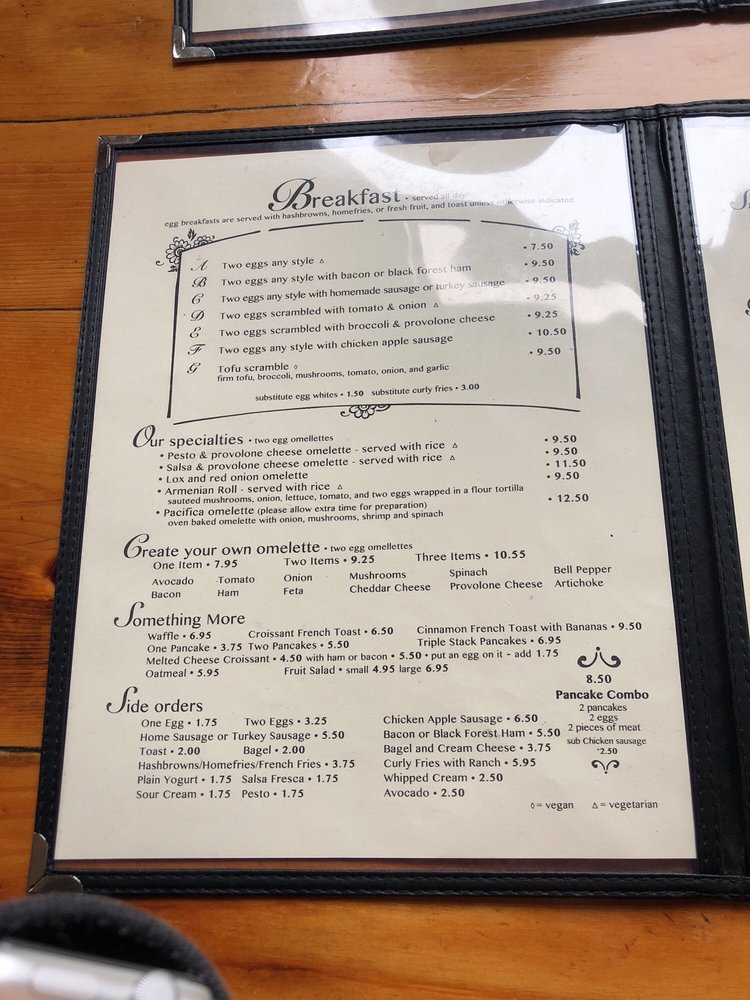 Breakfast • served all day
egg breakfasts are served with hashbrowns, homefries, or fresh fruit, and toast unless otherwise indicated
A Two eggs any style △ • 7.50
B Two eggs any style with bacon or black forest ham • 9.50
C Two eggs any style with homemade sausage or turkey sausage • 9.50
D Two eggs scrambled with tomato & onion △ • 9.25
E Two eggs scrambled with broccoli & provolone cheese • 9.25
F Two eggs any style with chicken apple sausage • 10.50
G Tofu scramble ◊ • 9.50
firm tofu, broccoli, mushrooms, tomato, onion, and garlic
substitute egg whites • 1.50 substitute curly fries • 3.00
Our specialties • two egg omellettes
• Pesto & provolone cheese omelette - served with rice △ • 9.50
• Salsa & provolone cheese omelette - served with rice △ • 9.50
• Lox and red onion omelette • 11.50
• Armenian Roll - served with rice △ • 9.50
sauteed mushrooms, onion, lettuce, tomato, and two eggs wrapped in a flour tortilla
• Pacifica omelette (please allow extra time for preparation) • 12.50
oven baked omelette with onion, mushrooms, shrimp and spinach
Create your own omelette • two egg omellettes
One Item • 7.95 Two Items • 9.25 Three Items • 10.55
Avocado Tomato Onion Mushrooms Spinach Bell Pepper
Bacon Ham Feta Cheddar Cheese Provolone Cheese Artichoke
Something More
Waffle • 6.95 Croissant French Toast • 6.50 Cinnamon French Toast with Bananas • 9.50
One Pancake • 3.75 Two Pancakes • 5.50 Triple Stack Pancakes • 6.95
Melted Cheese Croissant • 4.50 with ham or bacon • 5.50 • put an egg on it - add 1.75
Oatmeal • 5.95 Fruit Salad • small 4.95 large 6.95
8.50
Pancake Combo
2 pancakes
2 eggs
2 pieces of meat
sub Chicken sausage
*2.50
Side orders
One Egg • 1.75 Two Eggs • 3.25 Chicken Apple Sausage • 6.50
Home Sausage or Turkey Sausage • 5.50 Bacon or Black Forest Ham • 5.50
Toast • 2.00 Bagel • 2.00 Bagel and Cream Cheese • 3.75
Hashbrowns/Homefries/French Fries • 3.75 Curly Fries with Ranch • 5.95
Plain Yogurt • 1.75 Salsa Fresca • 1.75 Whipped Cream • 2.50
Sour Cream • 1.75 Pesto • 1.75 Avocado • 2.50
◊ = vegan △ = vegetarian